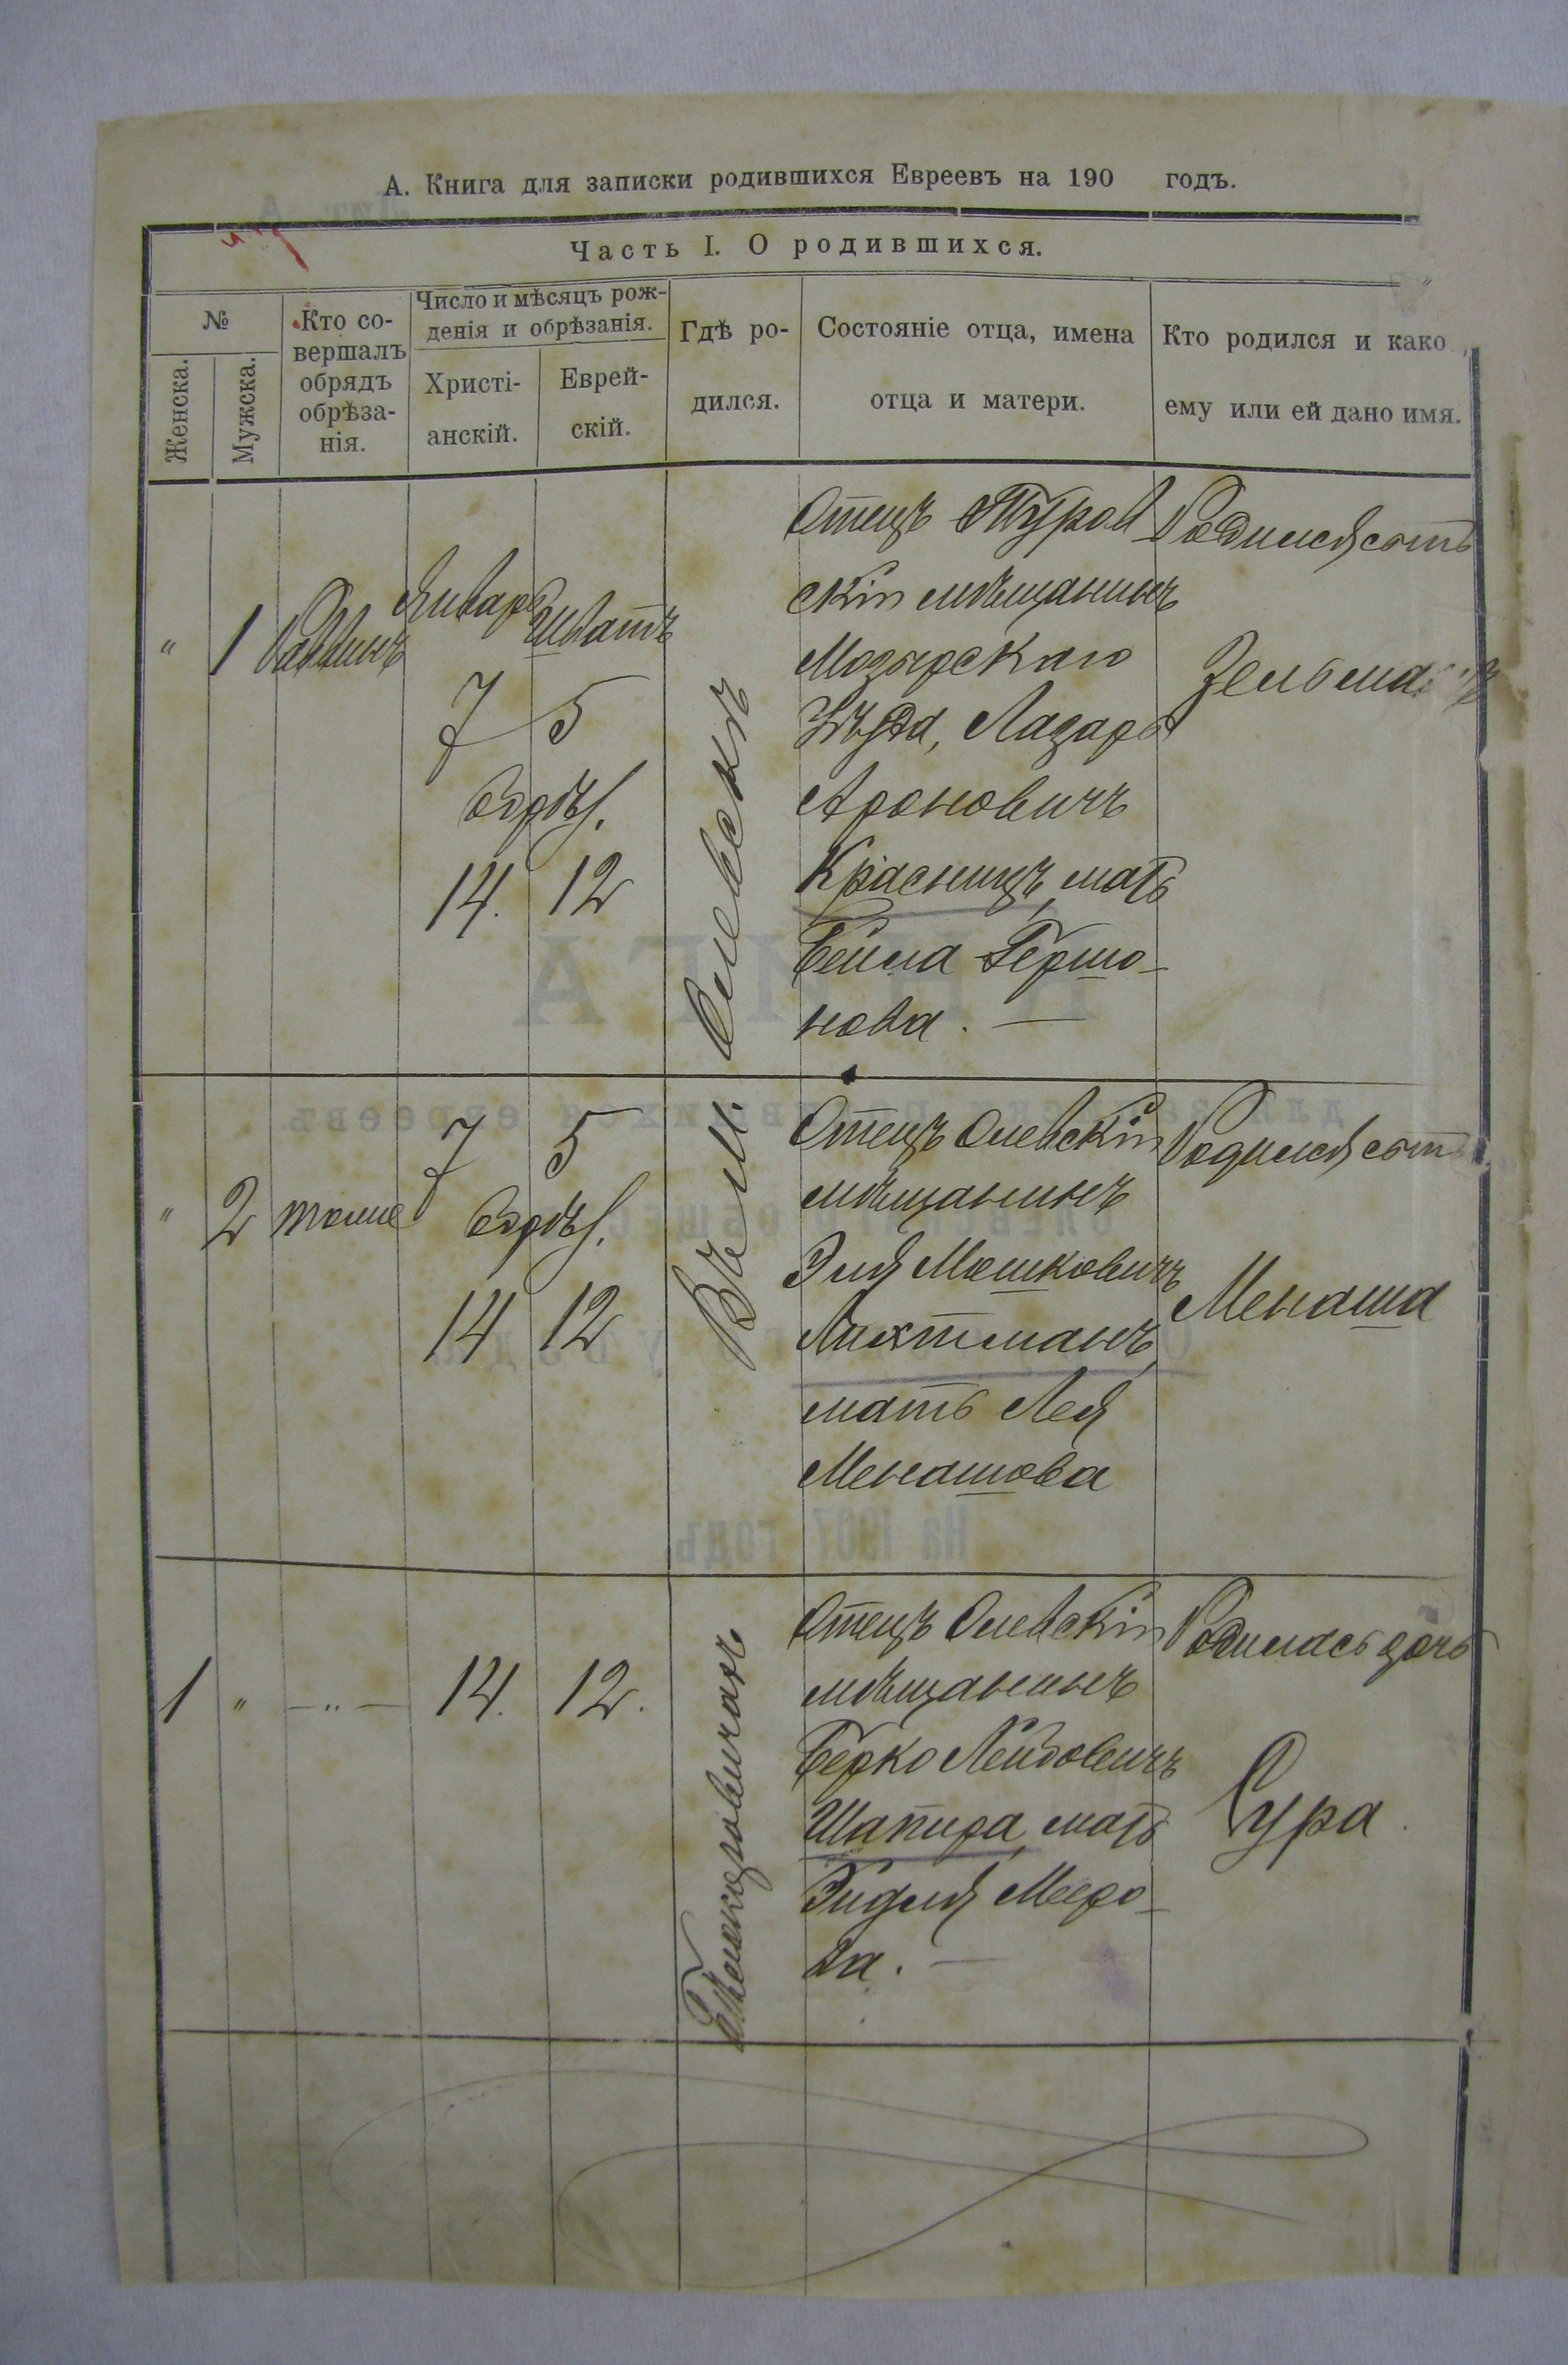 А. Книга для записки родившихся Евреевъ на 190 годъ.
Часть I. О родившихся.
№
Женска.
Мужска.
Кто со-
вершалъ
обрядъ
обрѣза-
нія.
Число и мѣсяцъ рож-
денія и обрѣзанія.
Христі-
анскій.
Еврей-
скій.
Гдѣ ро-
дился.
Состояніе отца, имена
отца и матери.
Кто родился и како
ему или ей дано имя.
" 1 Раввинъ
Январь Шватъ
7 5
обрѣз.
14. 12
Въ м. Олевскѣ
Отецъ Туров
скій мѣщанинъ
Мозырскаго
уѣзда, Лазарь
Ароновичъ
Красницъ, мать
Бейла Гершо-
нова. —
Родился сынъ
Зельманъ
" 2 тоже
7 5
обрѣз.
14 12
Отецъ Олевскій
мѣщанинъ
Эля Мошковичъ
Лихтманъ,
мать Лея
Менашова
Родился сынъ
Менаша
1 " — " —
14. 12.
Отецъ Олевскій
мѣщанинъ
Берко Лейбовичъ
Шапира, мать
Эйдля Мееро-
ва. —
Родилась дочь
Сура
На 1907 годъ